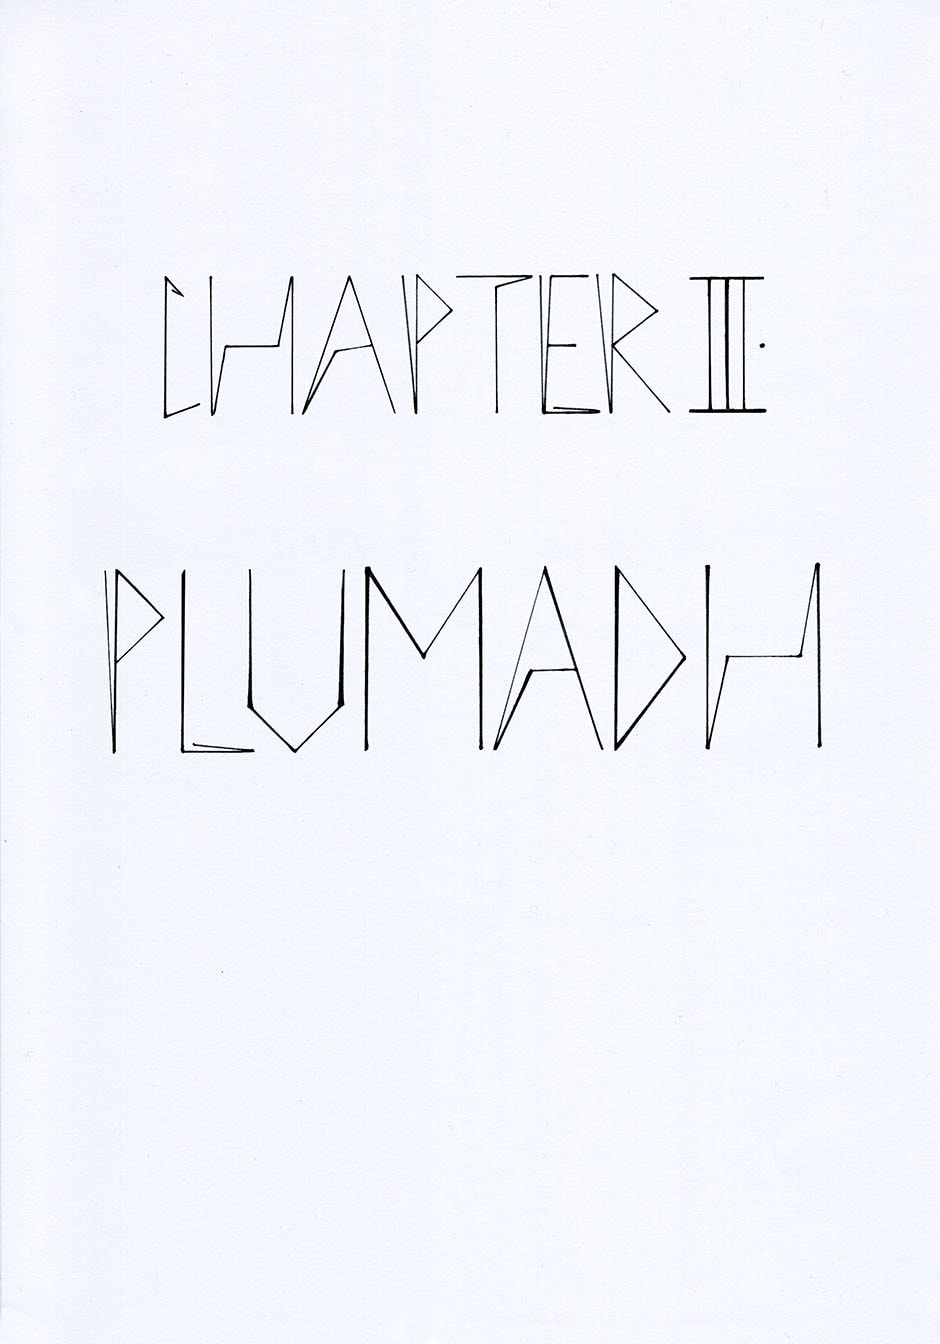 CHAPTER III.
PLUMADH